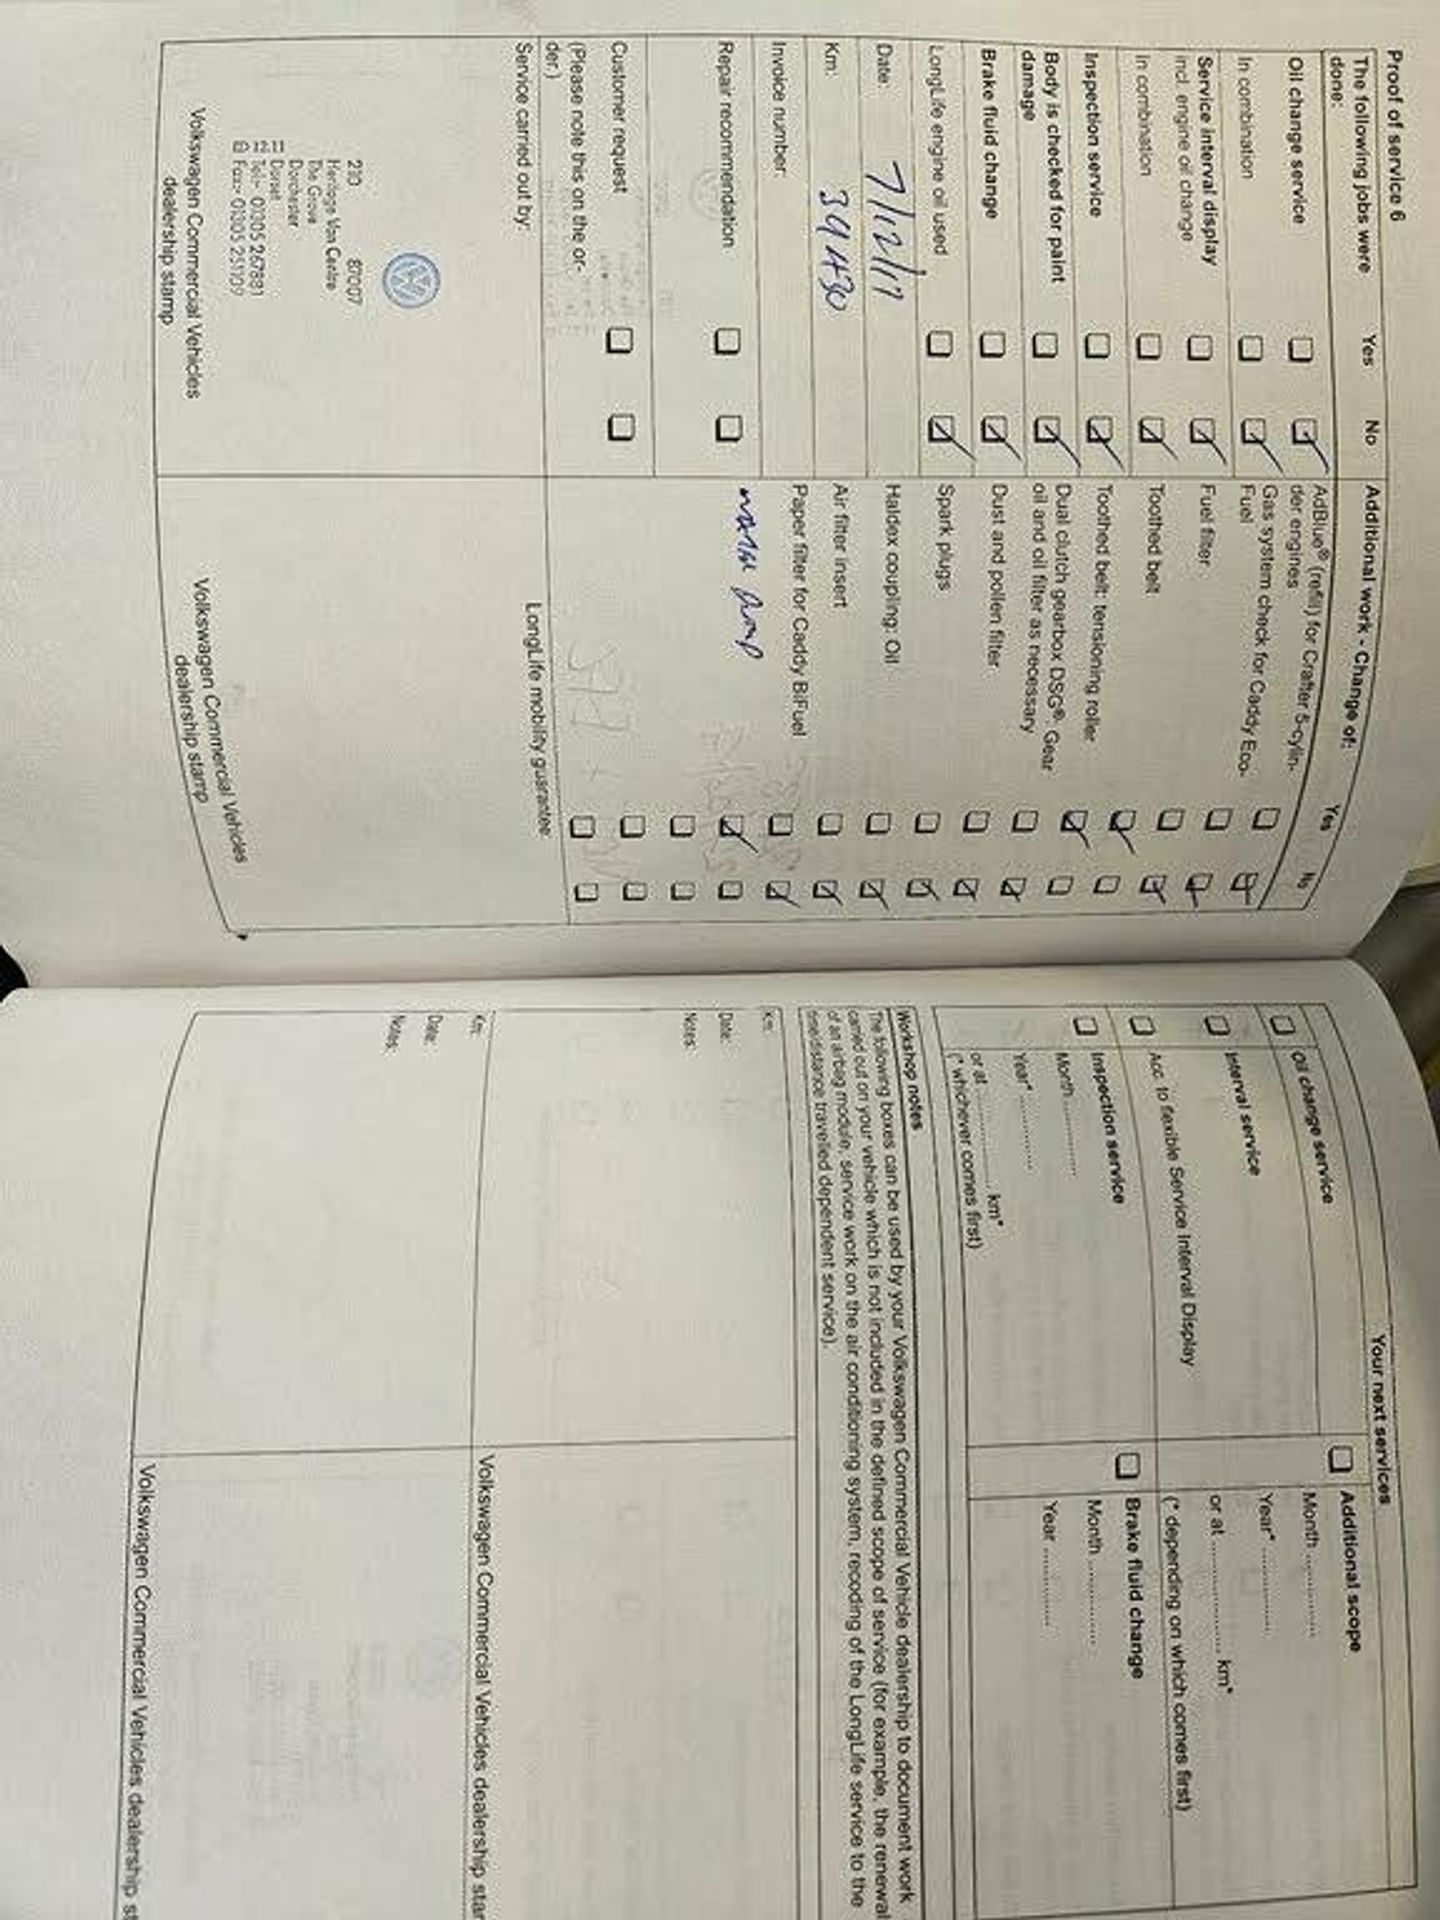 Proof of service 6
The following jobs were
done:
Yes
No
Oil change service
In combination
Service interval display
incl. engine oil change
In combination
Inspection service
Body is checked for paint
damage
Brake fluid change
LongLife engine oil used
Date:
7/12/17
Km:
39430
Invoice number:
Repair recommendation
Customer request
(Please note this on the or-
der.)
Service carried out by:
210 87007
Heritage Van Centre
The Grove
Dorchester
Dorset
Tel:- 01305 267881
Fax:- 01305 251709
Volkswagen Commercial Vehicles
dealership stamp
Additional work - Change of:
Yes
No
AdBlue® (refill) for Crafter 5-cylin-
der engines
Gas system check for Caddy Eco-
Fuel
Fuel filter
Toothed belt
Toothed belt: tensioning roller
Dual clutch gearbox DSG®: Gear
oil and oil filter as necessary
Dust and pollen filter
Spark plugs
Haldex coupling: Oil
Air filter insert
Paper filter for Caddy BiFuel
water pump
LongLife mobility guarantee:
Volkswagen Commercial Vehicles
dealership stamp
Your next services
Oil change service
Interval service
Acc. to flexible Service Interval Display
Inspection service
Month ............
Year* ............
or at ............... km*
(* whichever comes first)
Additional scope
Month ............
Year* ............
or at ............... km*
(* depending on which comes first)
Brake fluid change
Month ............
Year ............
Workshop notes
The following boxes can be used by your Volkswagen Commercial Vehicle dealership to document work
carried out on your vehicle which is not included in the defined scope of service (for example, the renewal
of an airbag module, service work on the air conditioning system, recoding of the LongLife service to the
time/distance travelled dependent service).
Km:
Date:
Notes:
Volkswagen Commercial Vehicles dealership star
Km:
Date:
Notes:
Volkswagen Commercial Vehicles dealership st